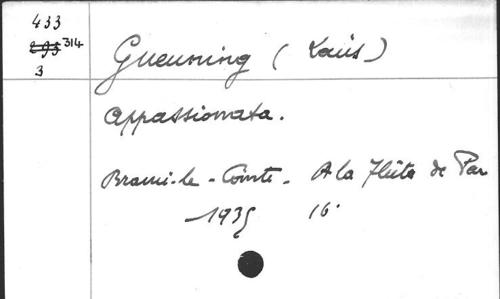 433
295 314
3
Gueuning (Louis)
Appassionata.
Braine-le-Comte - A la Flûte de Pan
- 1935 16°